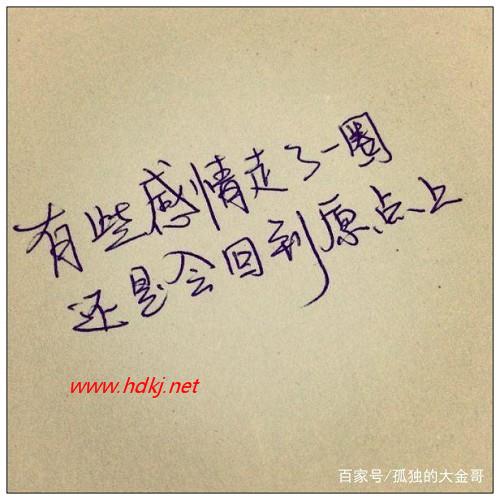 有些感情走了一圈
还是会回到原点上
www.hdkj.net
百家号/孤独的大金哥